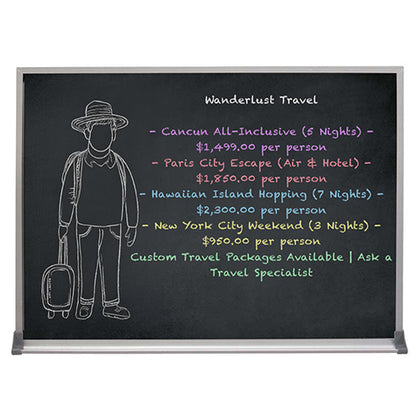 Wanderlust Travel
- Cancun All-Inclusive (5 Nights) -
$1,499.00 per person
- Paris City Escape (Air & Hotel) -
$1,850.00 per person
- Hawaiian Island Hopping (7 Nights) -
$2,300.00 per person
- New York City Weekend (3 Nights) -
$950.00 per person
Custom Travel Packages Available | Ask a
Travel Specialist